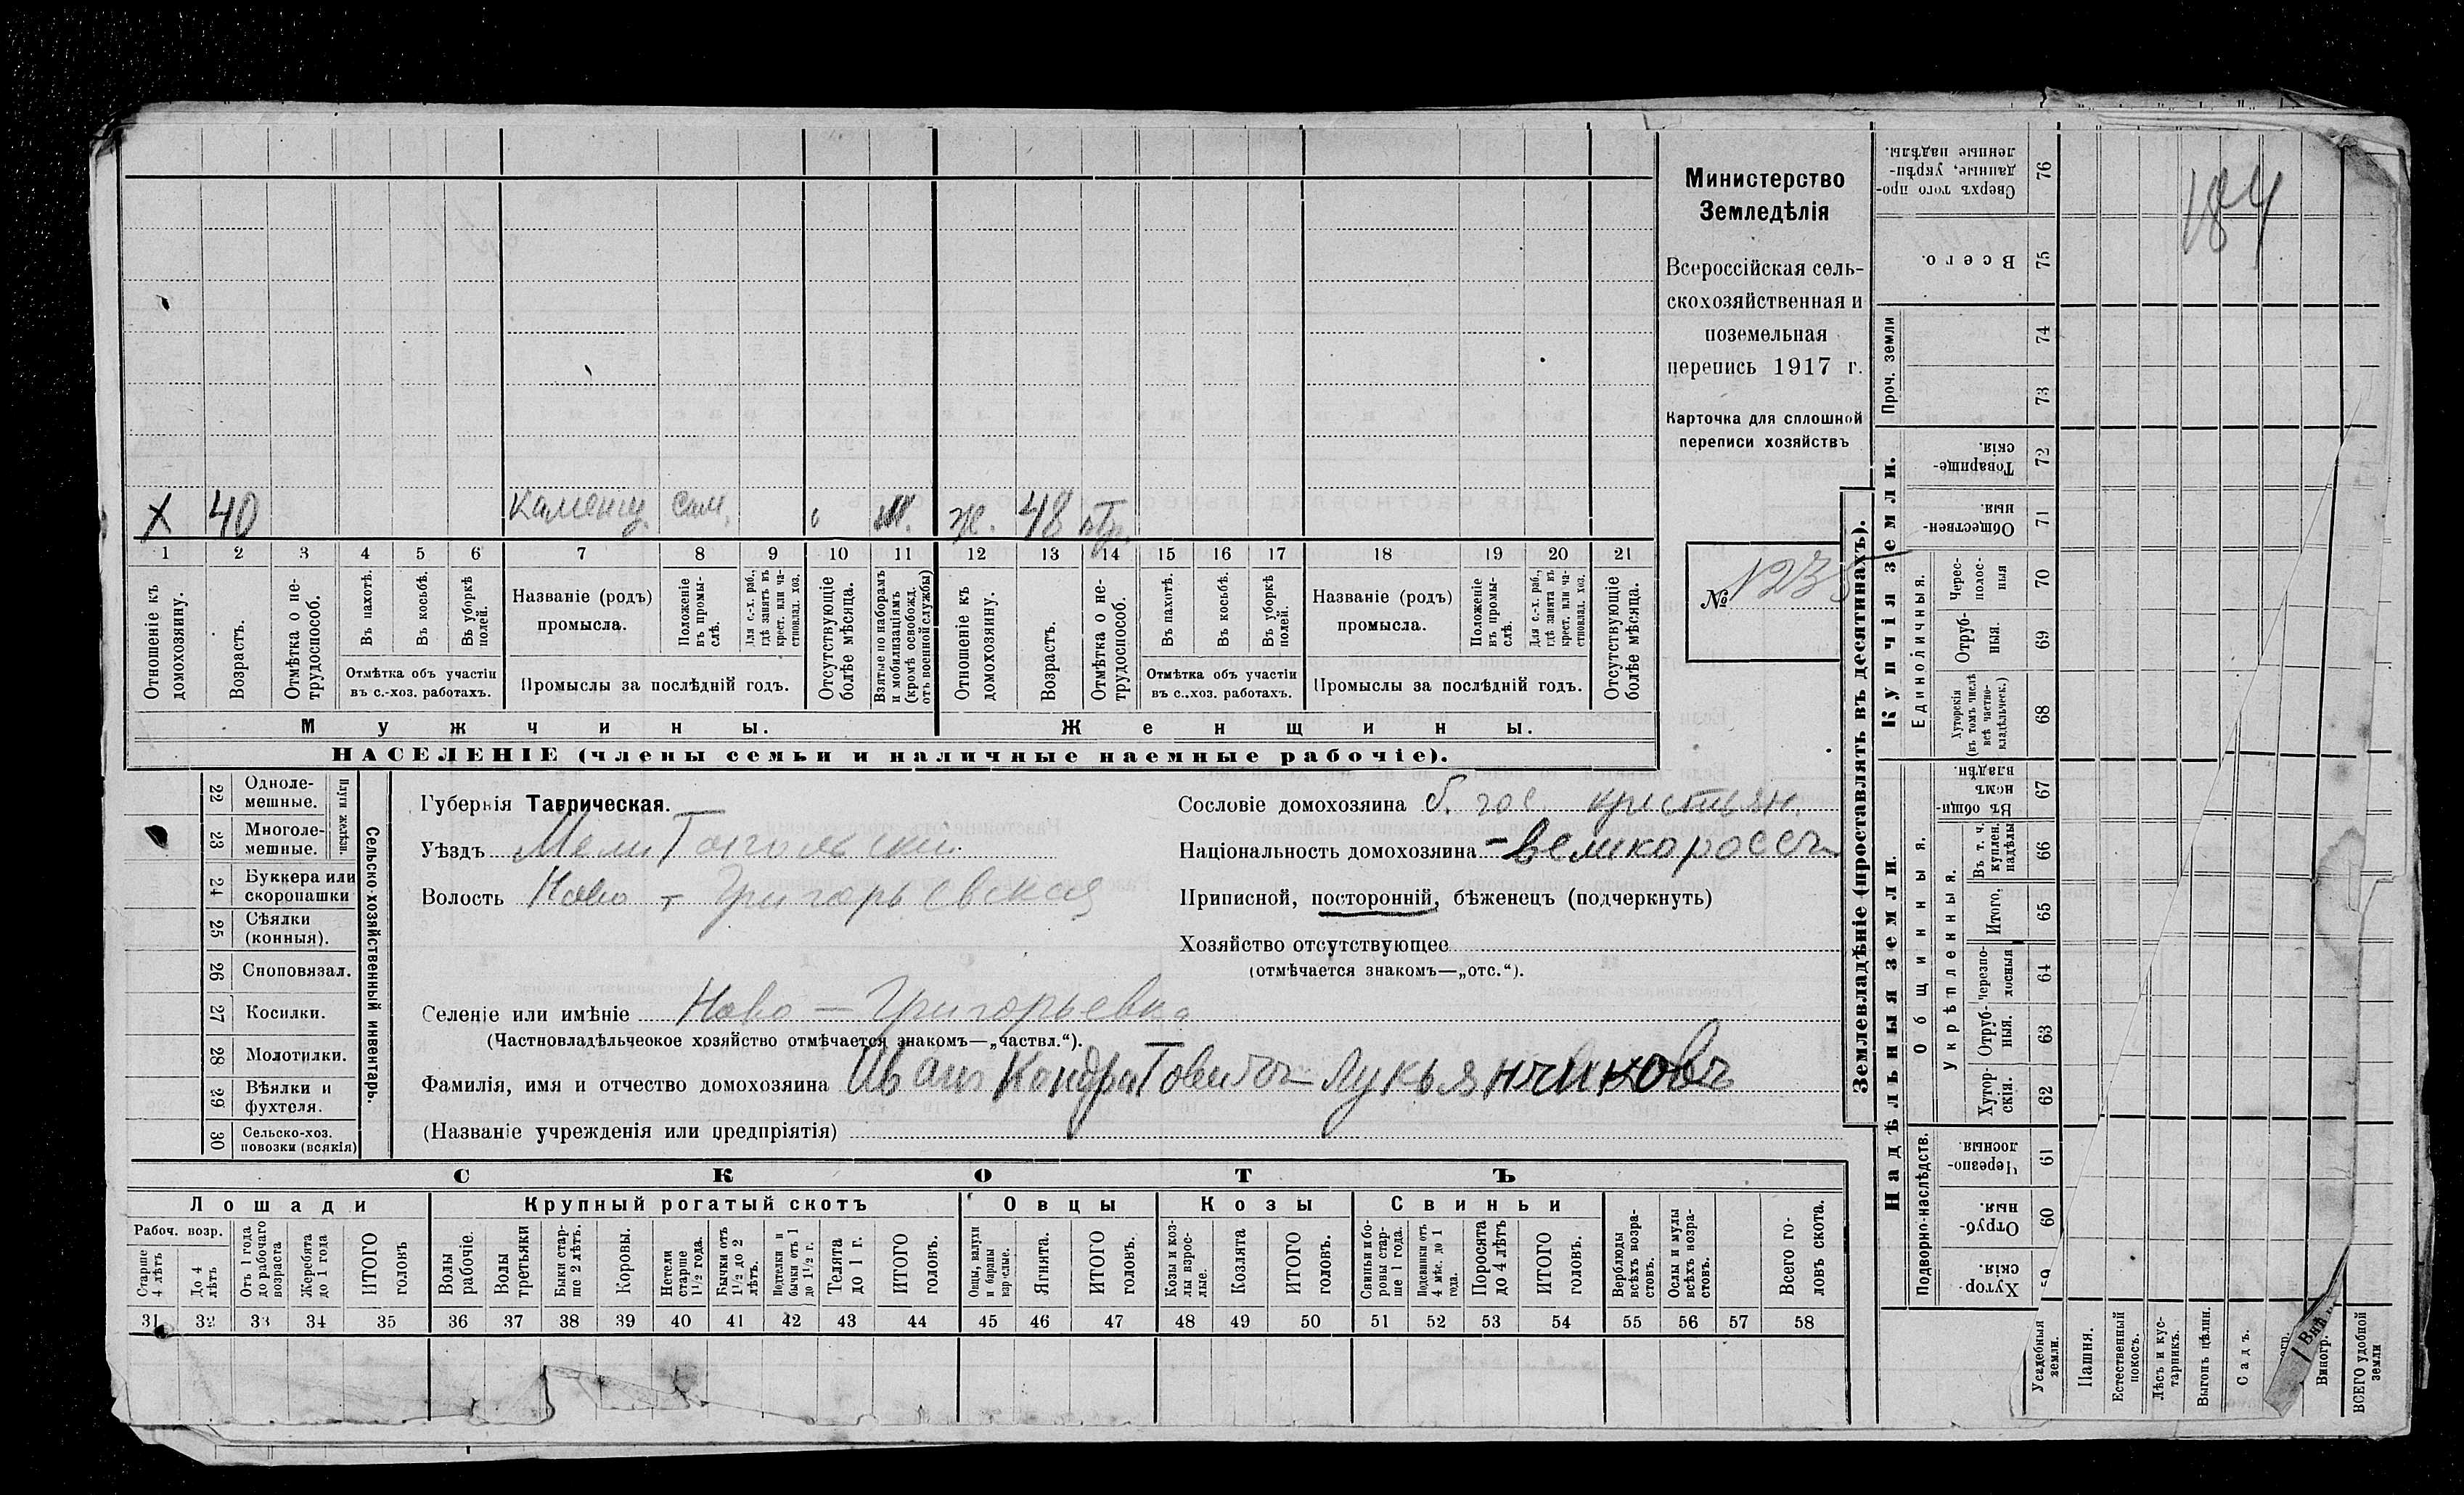 184
Министерство
Земледѣлія
Всероссійская сель-
скохозяйственная и
поземельная
перепись 1917 г.
Карточка для сплошной
переписи хозяйствъ
№ 123
X 40 каменщ. сам. ж. 48
1 2 3 4 5 6 7 8 9 10 11 12 13 14 15 16 17 18 19 20 21
Отношеніе къ домохозяину.
Возрастъ.
Отмѣтка о не-трудоспособ.
Въ пахотѣ.
Въ косьбѣ.
Въ уборкѣ полей.
Отмѣтка объ участіи
въ с.-хоз. работахъ.
Названіе (родъ)
промысла.
Положеніе въ промы-слѣ.
Для с.-х. раб., гдѣ занятъ въ крест. или ча-стновлад. хоз.
Промыслы за послѣдній годъ.
Отсутствующіе болѣе мѣсяца.
Взятые по наборамъ и мобилизаціямъ (кромѣ освобожд. отъ военной службы)
Отношеніе къ домохозяину.
Возрастъ.
Отмѣтка о не-трудоспособ.
Въ пахотѣ.
Въ косьбѣ.
Въ уборкѣ полей.
Отмѣтка объ участіи
въ с..хоз. работахъ.
Названіе (родъ)
промысла.
Положеніе въ промы-слѣ.
Для с.-х. раб., гдѣ занята въ крест. или ча-стновлад. хоз.
Промыслы за послѣдній годъ.
Отсутствующіе болѣе мѣсяца.
Мужчины. Женщины.
НАСЕЛЕНІЕ (члены семьи и наличные наемные рабочіе).
Сельско-хозяйственный инвентарь.
Плуги желѣзн.
22 Одноле-мешные.
23 Многоле-мешные.
24 Буккера или скоропашки
25 Сѣялки (конныя).
26 Сноповязал.
27 Косилки.
28 Молотилки.
29 Вѣялки и фухтеля.
30 Сельско-хоз. повозки (всякія)
Губернія Таврическая.
Уѣздъ Мелитопольскій
Волость Ново-Григорьевская
Селеніе или имѣніе Ново-Григорьевка
(Частновладѣльческое хозяйство отмѣчается знакомъ—„частвл.“).
Фамилія, имя и отчество домохозяина Иванъ Кондратовичъ Лукьянчиковъ
(Названіе учрежденія или предпріятія)
Сословіе домохозяина б. гос. крестьян.
Національность домохозяина -великороссъ
Приписной, посторонній, бѣженецъ (подчеркнуть)
Хозяйство отсутствующее
(отмѣчается знакомъ—„отс.“).
СКОТЪ
Лошади Крупный рогатый скотъ Овцы Козы Свиньи
Рабоч. возр.
Старше 4 лѣтъ
До 4 лѣтъ
Отъ 1 года до рабочаго возраста
Жеребята до 1 года
ИТОГО головъ
Волы рабочіе.
Волы третьяки
Быки стар-ше 2 лѣтъ.
Коровы.
Нетели старше 1½ года.
Бычки отъ 1½ до 2 лѣтъ.
Подтелки и бычки отъ 1 до 1½ г.
Телята до 1 г.
ИТОГО головъ.
Овцы, валухи и бараны взрослые.
Ягнята.
ИТОГО головъ.
Козы и коз-лы взрос-лые.
Козлята
ИТОГО головъ.
Свиньи и бо-ровы стар-ше 1 года.
Подсвинки отъ 4 мѣс. до 1 года.
Поросята до 4 лѣтъ
ИТОГО головъ.
Верблюды всѣхъ возра-стовъ.
Ослы и мулы всѣхъ возра-стовъ.
Всего го-ловъ скота.
31 32 33 34 35 36 37 38 39 40 41 42 43 44 45 46 47 48 49 50 51 52 53 54 55 56 57 58
Землевладѣніе (проставлять въ десятинахъ).
Купчія земли.
Сверхъ того про-данные, укрѣп-ленные надѣлы. 76
Всего. 75
Проч. земли
74
73
Товарище-скія. 72
Обществен-ныя. 71
Единоличныя.
Черес-полос-ныя 70
Отруб-ныя. 69
Хуторскія (въ томъ числѣ всѣ частно-владѣльческ.) 68
Надѣльныя земли.
Общинныя.
Въ общи-номъ владѣн. 67
Укрѣпленныя.
Въ т. ч. куплен. надѣлы 66
Итого. 65
Черезпо-лосныя 64
Отруб-ныя. 63
Хутор-скія. 62
Подворно-наслѣдств.
Черезпо-лосныя. 61
Отруб-ныя. 60
Хутор-скія.
Усадебныя земли.
Пашня.
Естественный покосъ.
Лѣсъ и кус-тарникъ.
Выгонъ цѣлин.
Садъ.
Виногр.
ВСЕГО удобной земли